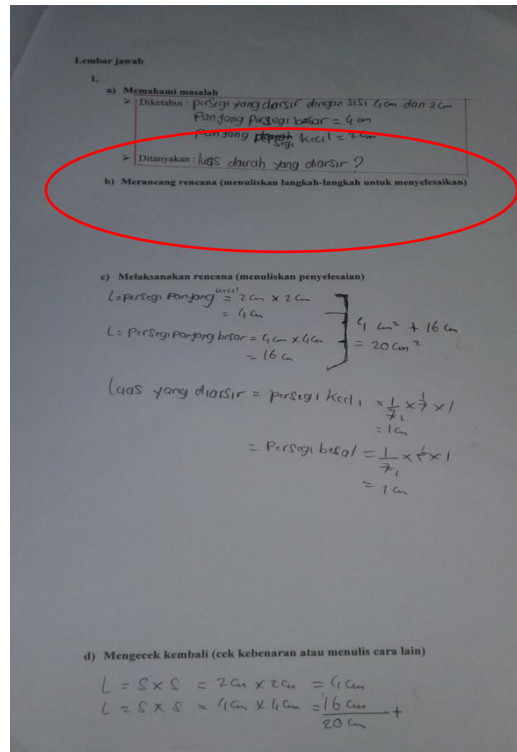 Lembar jawab
1.
a) Memahami masalah
➤ Diketahui : persegi yang diarsir dengan sisi 4 cm dan 2 cm
Panjang persegi besar = 4 cm
Panjang persegi kecil = 2 cm
➤ Ditanyakan : luas daerah yang diarsir ?
b) Merancang rencana (menuliskan langkah-langkah untuk menyelesaikan)
c) Melaksanakan rencana (menuliskan penyelesaian)
L = persegi panjang kecil = 2 cm × 2 cm
= 4 cm
L = persegi panjang besar = 4 cm × 4 cm
= 16 cm
4 cm² + 16 cm
= 20 cm²
Luas yang diarsir = persegi kecil
= 1 cm
= Persegi besar
= 1 cm
d) Mengecek kembali (cek kebenaran atau menulis cara lain)
L = S × S = 2 cm × 2 cm = 4 cm
L = S × S = 4 cm × 4 cm = 16 cm +
20 cm